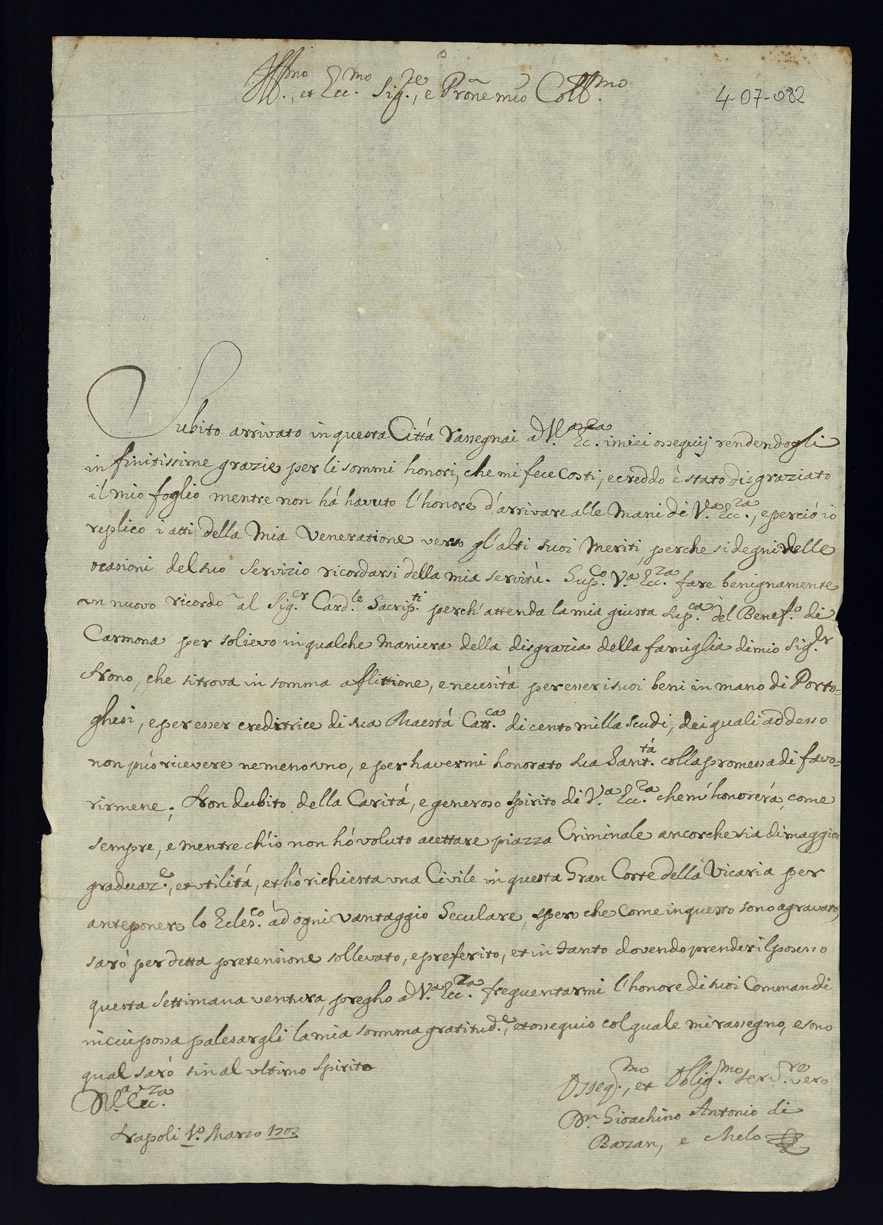 Ill.mo, et Ecc.mo Sig.re, e Prone mio Coll.mo
4-07-082
Subito arrivato in questa Cittá rassegnai ad V.a Ecc.za i miei ossequij rendendogli
infinitissime grazie per li sommi honori, che mi fece costi, e creddo è stato disgraziato
il mio foglio mentre non há havuto l'honore d'arrivare alle Mani di V.a Ecc.za, e perció io
replico i atti della Mia Veneratione verso gl'alti suoi Meriti, perche si degni delle
ocasioni del suo Servizio ricordarsi della mia servitù. Sup.co V.a Ecc.za fare benignamente
un nuovo ricordo al Sig.r Card.le Sacrip.ti perch'attenda la mia giusta sup.ca del Benef.o di
Carmona per solievo in qualche Maniera della disgrazia della famiglia di mio Sig.r
Nono, che si trova in somma aflittione, e necesitá per esser i suoi beni in mano di Porto-
ghesi, e per esser creditrice di sua Maestá Catt.ca di cento milla scudi, dei quali addesso
non può ricevere nemeno uno, e per havermi honorato sua Sant.tá colla promessa di favo-
rirmene; Non dubito della Caritá, e generoso spirito di V.a Ecc.za che m'honorerá, come
sempre, e mentre ch'io non hó voluto acettare piazza Criminale ancorche sia di maggior
graduaz.e, et utilitá, et hó richiesta una Civile in questa Gran Corte della Vicaria per
anteponere lo Ecles.co ad ogni vantaggio Seculare, spero che come in questo sono agravato,
saró per detta pretensione sollevato, e preferito, et in tanto dovendo prender il possesso
questa settimana ventura, pregho ad V.a Ecc.za frequentarmi l'honore di suoi Commandi
in cui possa palesargli la mia somma gratitud.e, et ossequio col quale mi rassegno, e sono
qual saró sin al ultimo spirito
D V.a Ecc.za
Osseq.mo, et Oblig.mo ser.re vero
Napoli 1.o Marzo 1707
D.n Gioachino Antonio di
Bazan, e Melo